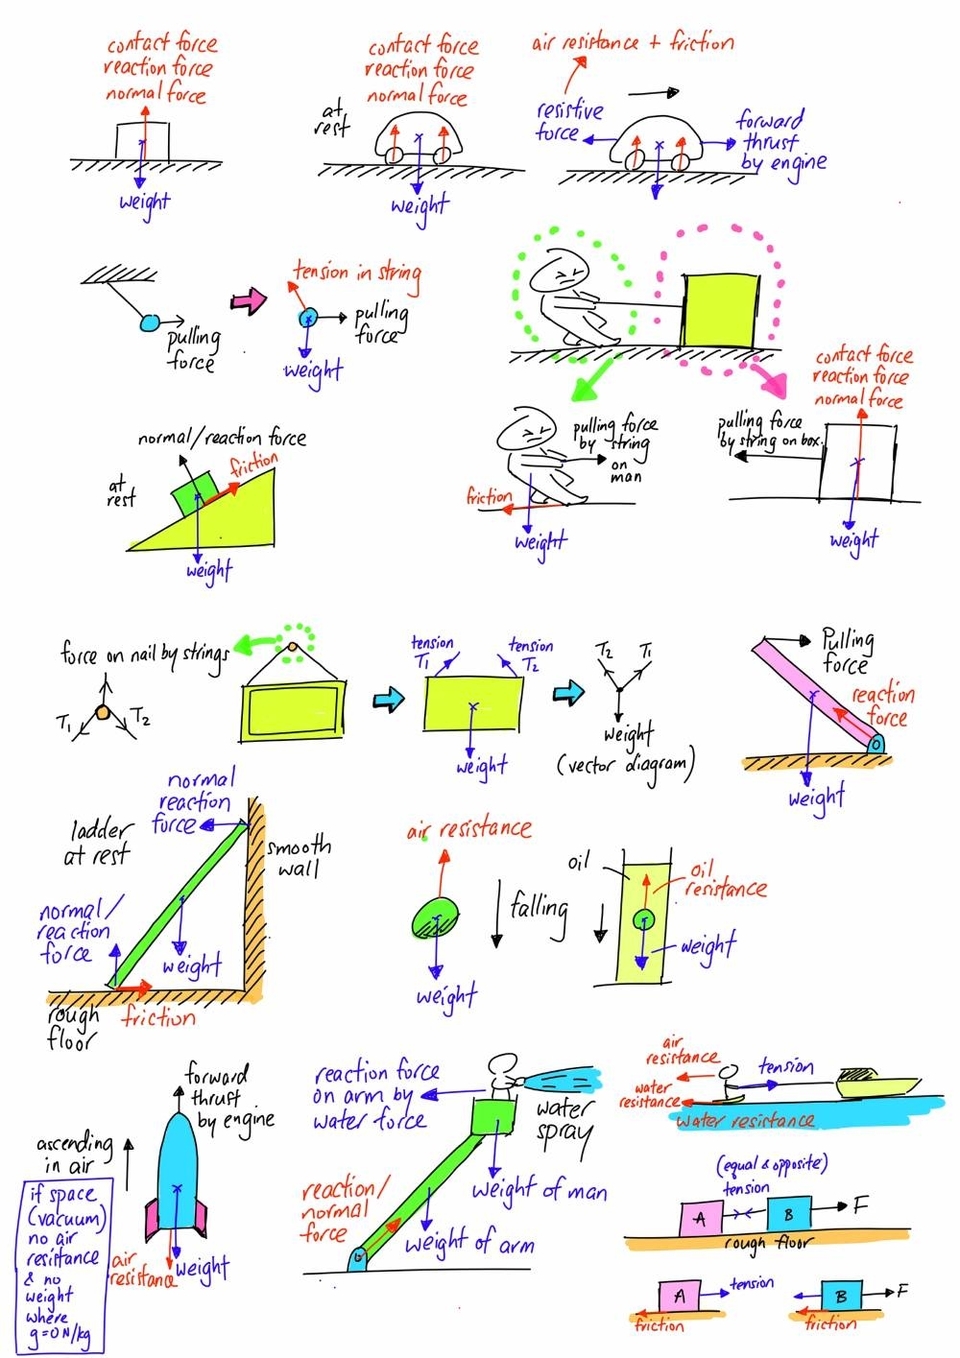 contact force
reaction force
normal force
weight
at
rest
contact force
reaction force
normal force
weight
air resistance + friction
resistive
force
forward
thrust
by engine
pulling
force
tension in string
pulling
force
weight
normal/reaction force
friction
at
rest
weight
pulling force
by string
on
man
friction
weight
contact force
reaction force
normal force
pulling force
by string on box
weight
force on nail by strings
T1
T2
tension
T1
tension
T2
weight
T2
T1
weight
(vector diagram)
Pulling
force
reaction
force
weight
ladder
at rest
normal
reaction
force
smooth
wall
normal/
reaction
force
weight
rough
floor
friction
air resistance
falling
weight
oil
oil
resistance
weight
forward
thrust
by engine
ascending
in air
if space
(vacuum)
no air
resistance
& no
weight
where
g=0N/kg
air
resistance
weight
reaction force
on arm by
water force
water
spray
weight of man
reaction/
normal
force
weight of arm
air
resistance
tension
water
resistance
water resistance
(equal & opposite)
tension
A
B
F
rough floor
A
tension
friction
B
F
friction